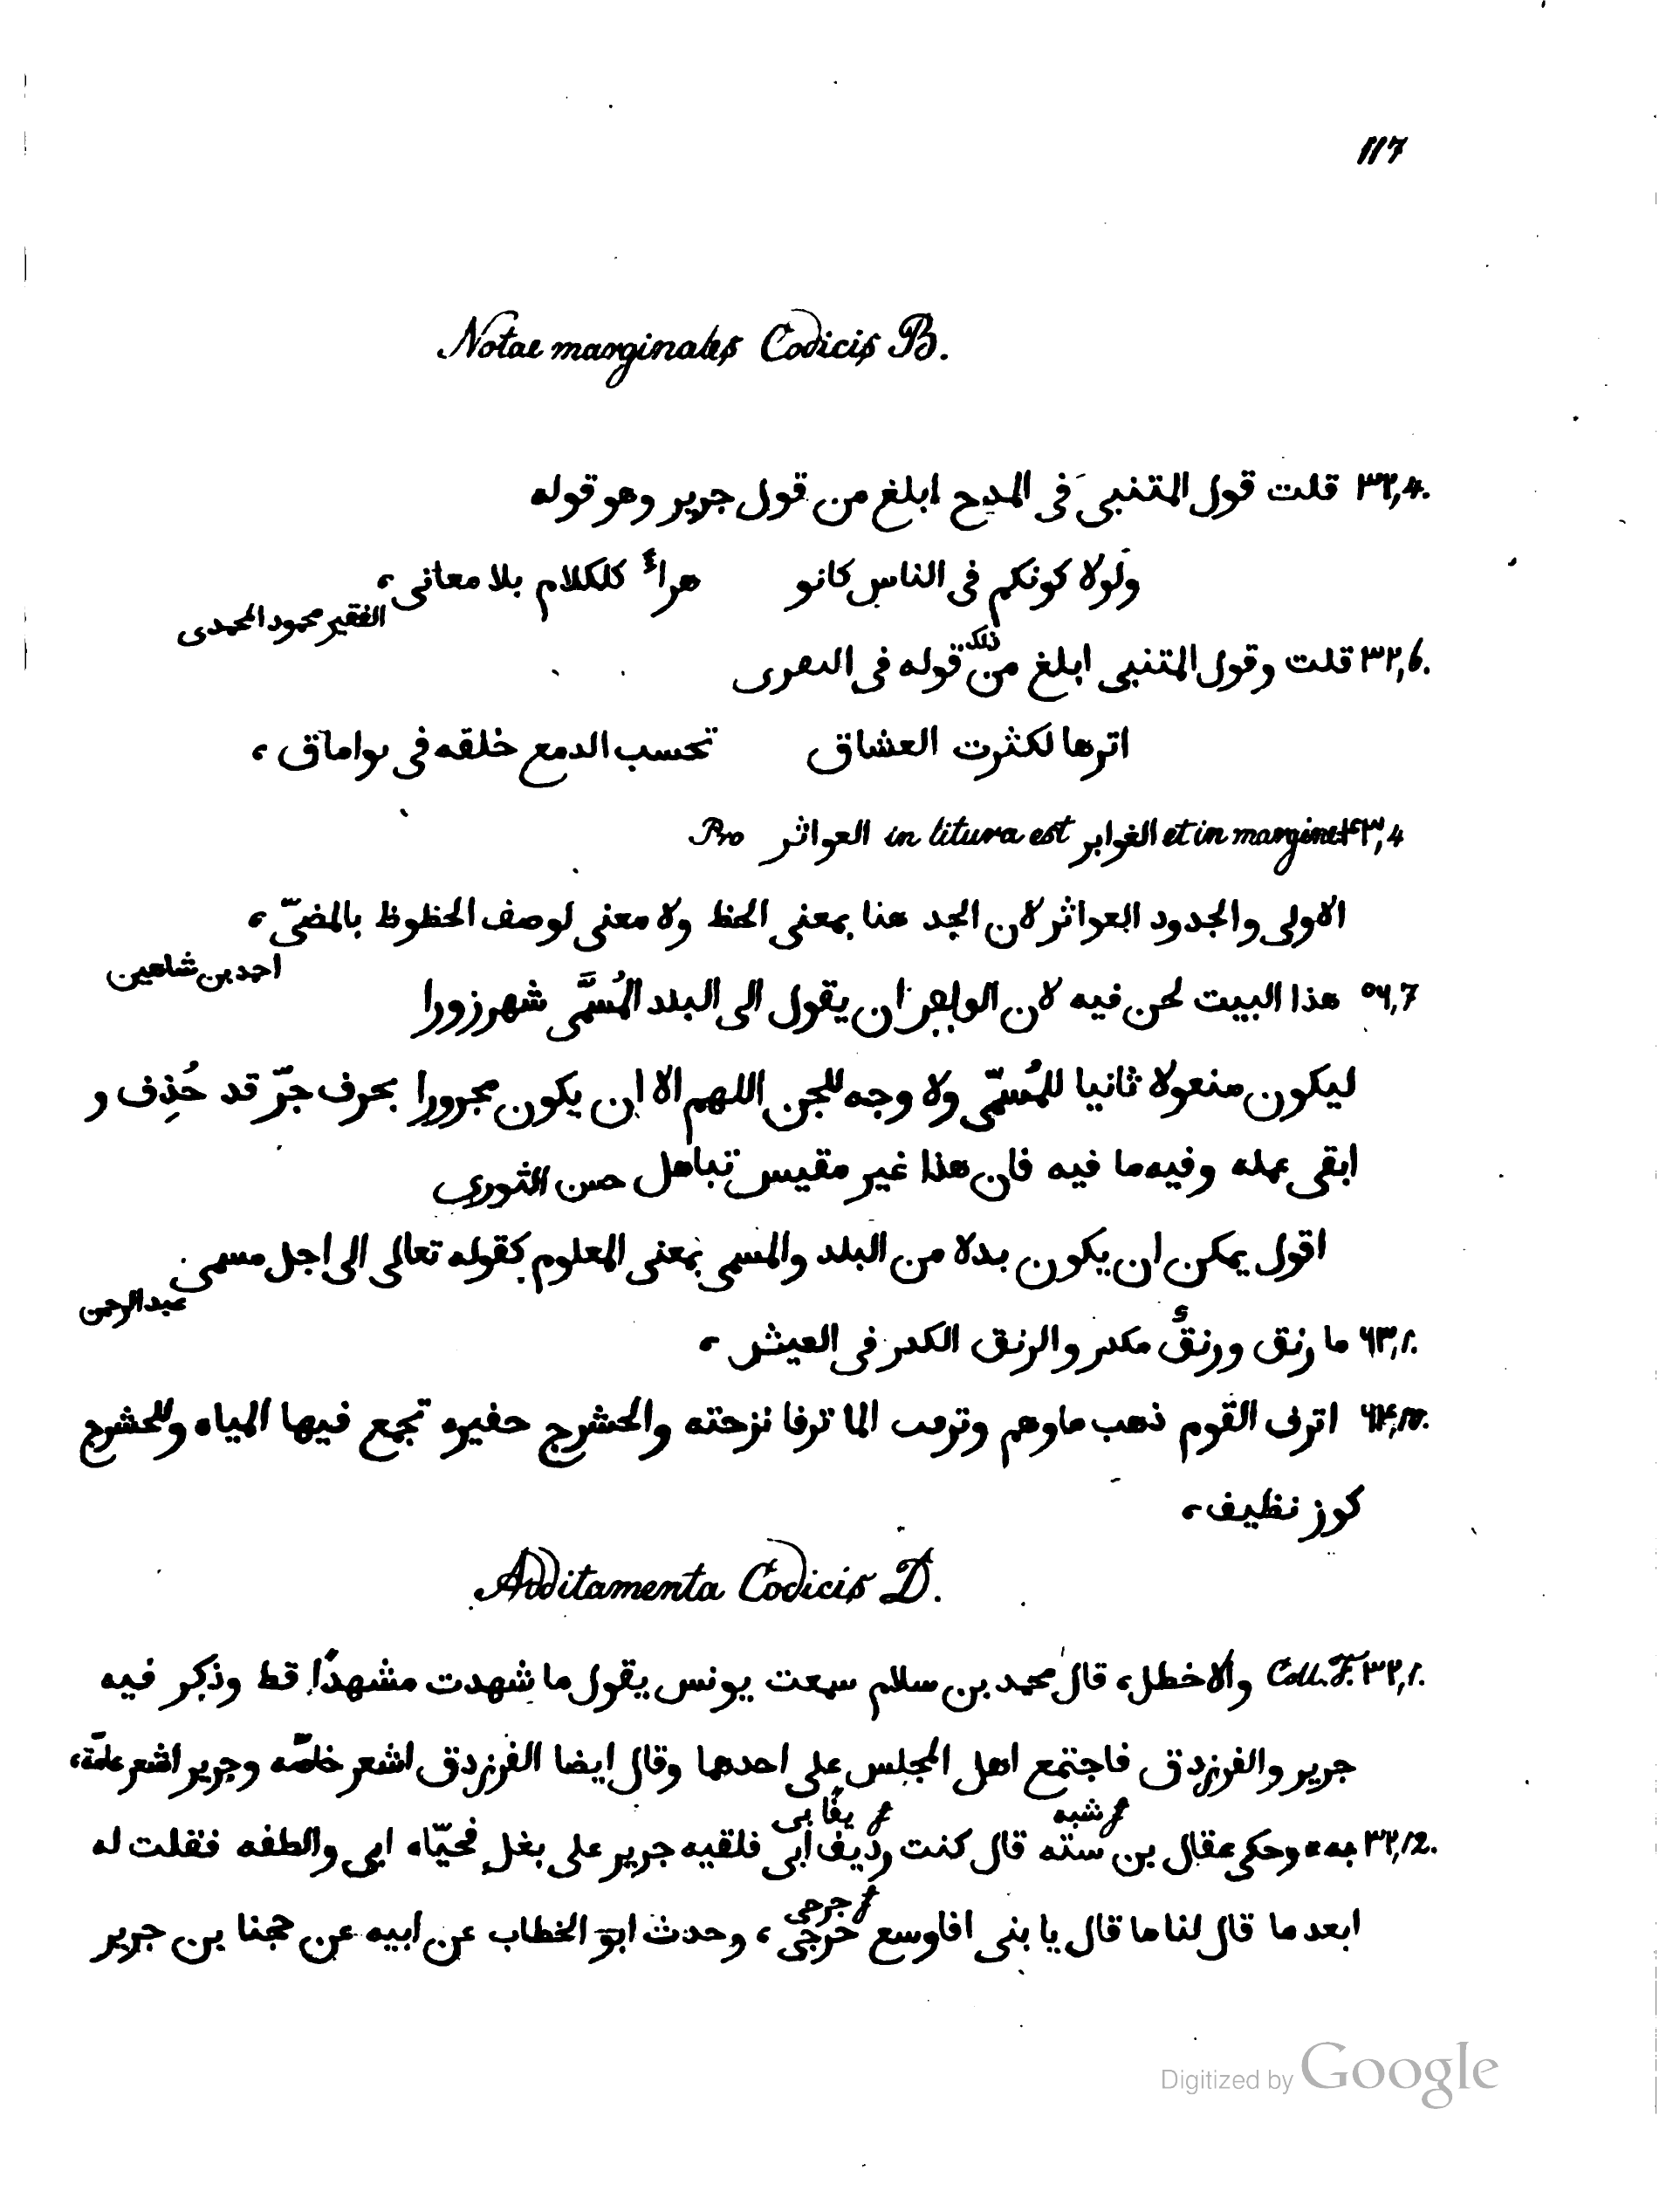 117
Notae marginales Codicis B.
٣٢,4. قلت قول المتنبى فى المدح ابلغ من قول جرير وهو قوله
ولولا كونكم فى الناس كانو هراء كلكلام بلا معانى،
الفقير محمود المحمدى
٣٢,6. قلت وقول المتنبى ابلغ من ذلك قوله فى
اترها لكثرت العشاق تحسب الدمع خلقه فى
٤٣,4 Pro العواثر in litura est الغوابر et in margine
الاولى والجدود العواثر لان الجد هنا بمعنى الحظ ولا معنى لوصف الحظوظ بالمضىّ،
احمد بن شاهين
٥٦,7 هذا البيت لحن فيه لان الواجب ان يقول الى البلد المُسَمَّى شهرزورا
ليكون مفعولا ثانيا للمُسَمّى ولا وجه للجر اللهم الا ان يكون مجرورا بحرف جرّ قد حُذِف و
ابقى عمله وفيه ما فيه فان هذا غير مقيس حسن
اقول يمكن ان يكون بدلا من البلد والمسمى بمعنى المعلوم كقوله تعالى الى اجل مسمى
عبد الرحمن
٦٣,1. ما رنق ورنقٌ مكدر والرنق الكدر فى العيش،
اترف القوم ذهب ماوهم الما ترفا نزحته والحشرج حفيره تجمع فيها المياه وللحشرج
كوز نظيف،
Additamenta Codicis D.
٣٢,1. Coll. F. والاخطل، قال محمد بن سلام سمعت يونس يقول ما شهدت مشهدًا قط وذكر فيه
جرير والفرزدق فاجتمع اهل المجلس على احدهما وقال ايضا الفرزدق اشعر خاصّه وجرير اشعر عامّة،
f شبه f يقابى
٣٢,12. به * وحكى عقال بن سته قال كنت رديف ابى فلقيه جرير على بغل فحيّاه ابى والطفه فقلت له
f جرحى
ابعد ما قال لنا ما قال يا بنى افاوسع خرجى، وحدث ابو الخطاب عن ابيه عن حجنا بن جرير
Digitized by Google